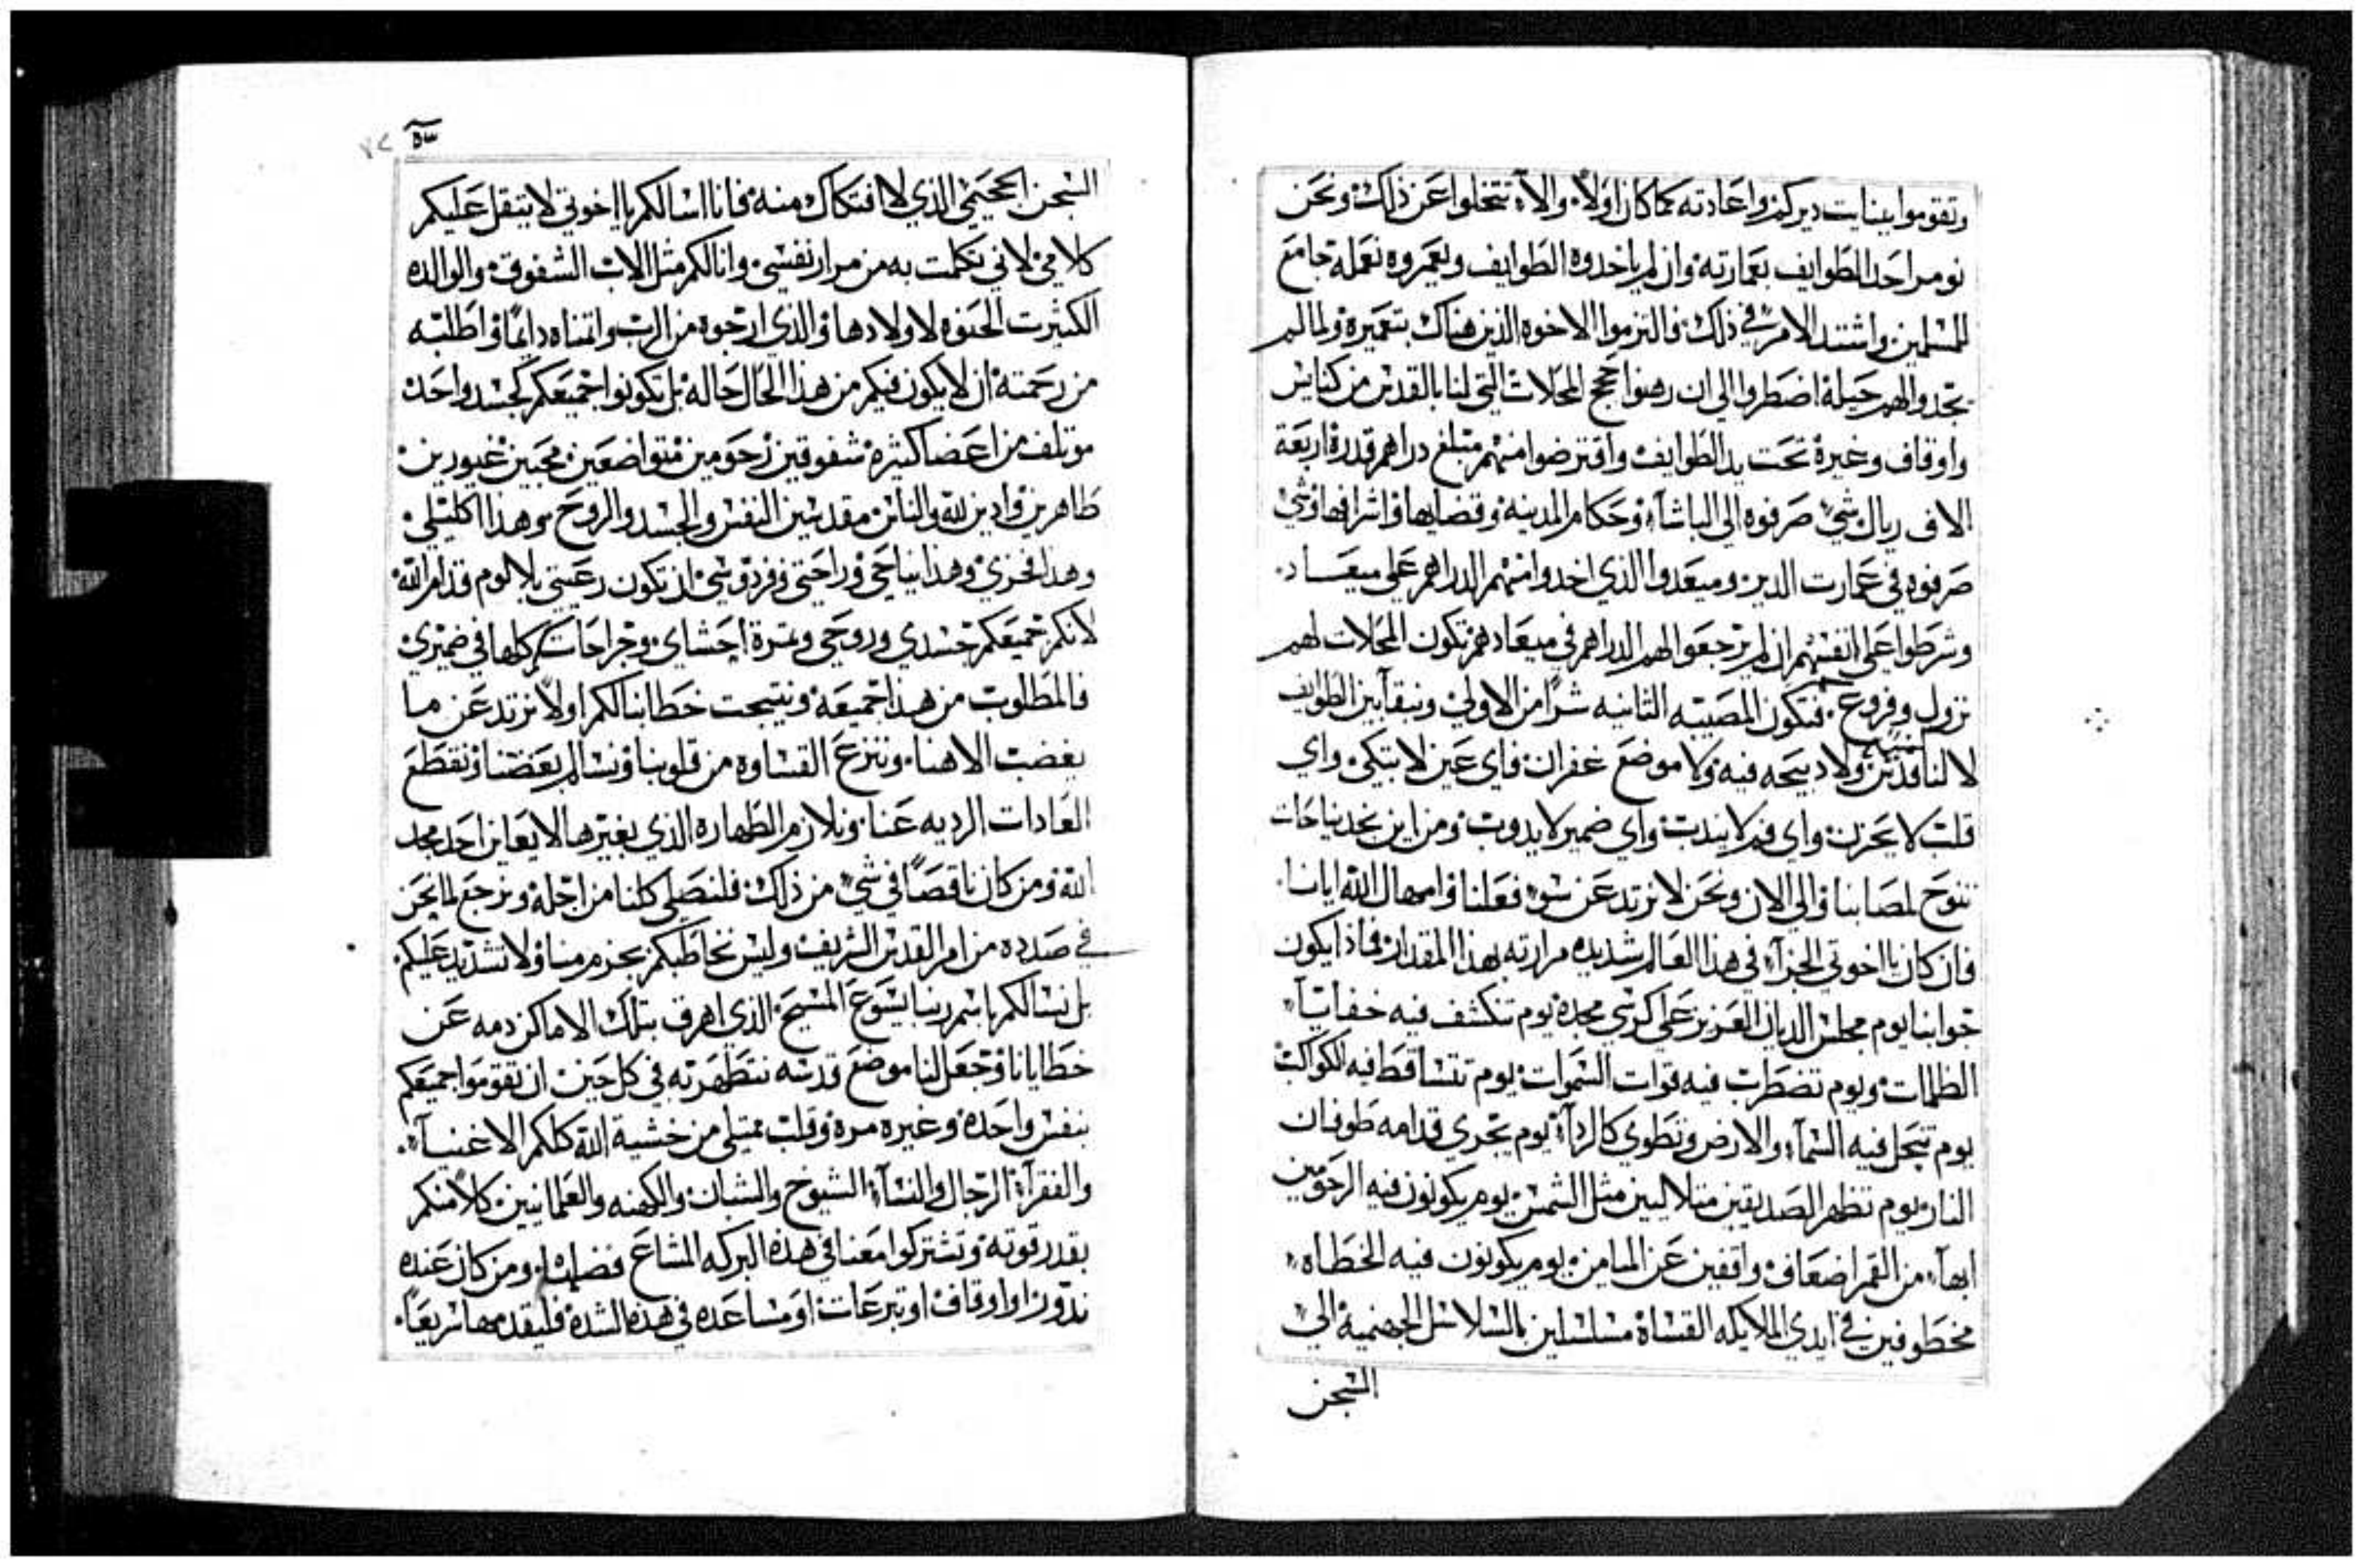 وتقوموا ببنايت ديركم واعادته كما كان اولاً والاّ تتخلوا عن ذلك ونحن
نومر احد الطوايف بعمارته وان لم ياخدوه الطوايف ويعمروه نعمله جامع
للمسلمين واشتد الامر في ذلك فالتزموا الاخوه الذين هناك بتعميره ولما لم
يجدوا لهم حيلة اضطروا الى ان رهنوا حجج المحلات التي لنا بالقدس من كنايس
واوقاف وغيرة تحت يد الطوايف واقترضوا منهم مبلغ دراهم قدرة اربعة
الاف ريال شي صرفوه الى الباشاء وحكام المدينه وقضايها واشرافها وشي
صرفوه في عمارت الدير وميعدوا الذي اخدوا منهم الدراهم على ميعاد
وشرطوا على انفسهم ان لم يرجعوا لهم الدراهم في ميعادهم تكون المحلات لهم
نزول وفروع فتكون المصيبه الثانيه شراً من الاولي ونبقا بين الطوايف
لا لنا قدس ولا دبيحه فيه ولا موضع غفران فاي عين لا تبكي واي
قلب لا يحزن واي فم لا يندب واي ضمير لا يدوب ومن اين نجد نياحات
ننوح لمصابنا والي الان ونحن لا نرتد عن سوء فعلنا وامهال الله ايانا
فان كان يا اخوتي الجزاء في هذا العالم شديده مرارته بهذا المقدار فماذا يكون
جوابنا يوم مجلس الديان العزيز على كرسي مجده يوم تنكشف فيه خفايا
الظلمات ويوم تضطرب فيه قوات السموات يوم تتساقط فيه الكواكب
يوم تنحل فيه السماء والارض وتطوي كالرداء يوم تجري قدامه طوفان
النار يوم تظهر الصديقين متلاليين مثل الشمس يوم يكونون فيه الرحومين
ابهاء من القمر اضعاف واقفين عن الميامن يوم يكونون فيه الخطاه
مخطوفين في ايدي الملايكه القساة مسلسلين بالسلاسل الجهنمية الي
السجن
السجن الجحيمي الذي لا افتكاك منه فانا اسالكم يا اخوتي لا يتقل عليكم
كلامي لاني تكلمت به من مرار نفسي وانا لكم مثل الاب الشفوق والوالده
الكثيرت الحنوه لاولادها والذي ارجوه من الرب واتمناه دايماً واطلبه
من رحمته ان لا يكون فيكم من هذا الحال حاله بل تكونوا جميعكم كجسد واحد
موتلف من اعضا كثيره شفوقين رحومين متواضعين محبين غيورين
طاهرين وادين لله والناس مقدسين النفس والجسد والروح وهذا اكليلي
وهدا فخري وهدا نياحي وراحتي وفردوسي ان تكون رعيتي بلا لوم قدام الله
لانكم جميعكم جسدي وروحي وثمرة احشاي وجراحاتكم كلها في ضميري
فالمطلوب من هذا جميعه ونتيجت خطابنا لكم اولاً نرتد عن ما
يغضب الاهنا وننزع القساوه من قلوبنا ونسالم بعضنا ونقطع
العادات الرديه عنا ونلازم الطهاره الذي بغيرها لا يعاين احد مجد
الله ومن كان ناقصاً في شي من ذلك فلنصلي كلنا من اجله ونرجع لما نحن
في صدده من امر القدس الشريف وليس نخاطبكم بحزم منا ولا تشديد عليكم
بل نسالكم باسم ربنا يسوع المسيح الذي اهرق بتلك الاماكن دمه عن
خطايانا وجعل لنا موضع قدسه نتطهر به في كل حين ان تقوموا جميعكم
بنفس واحده وغيره مره وقلب ممتلي من خشية الله كلكم الاغنياء
والفقراء الرجال والنساء الشيوخ والشبان والكهنه والعلمانيين كلاً منكم
بقدر قوته وتشتركوا معنا في هذه البركه المشاع فضلها ومن كان عنده
ندور او اوقاف او تبرعات او مساعده في هذه الشدة فليقدمها سريعاً